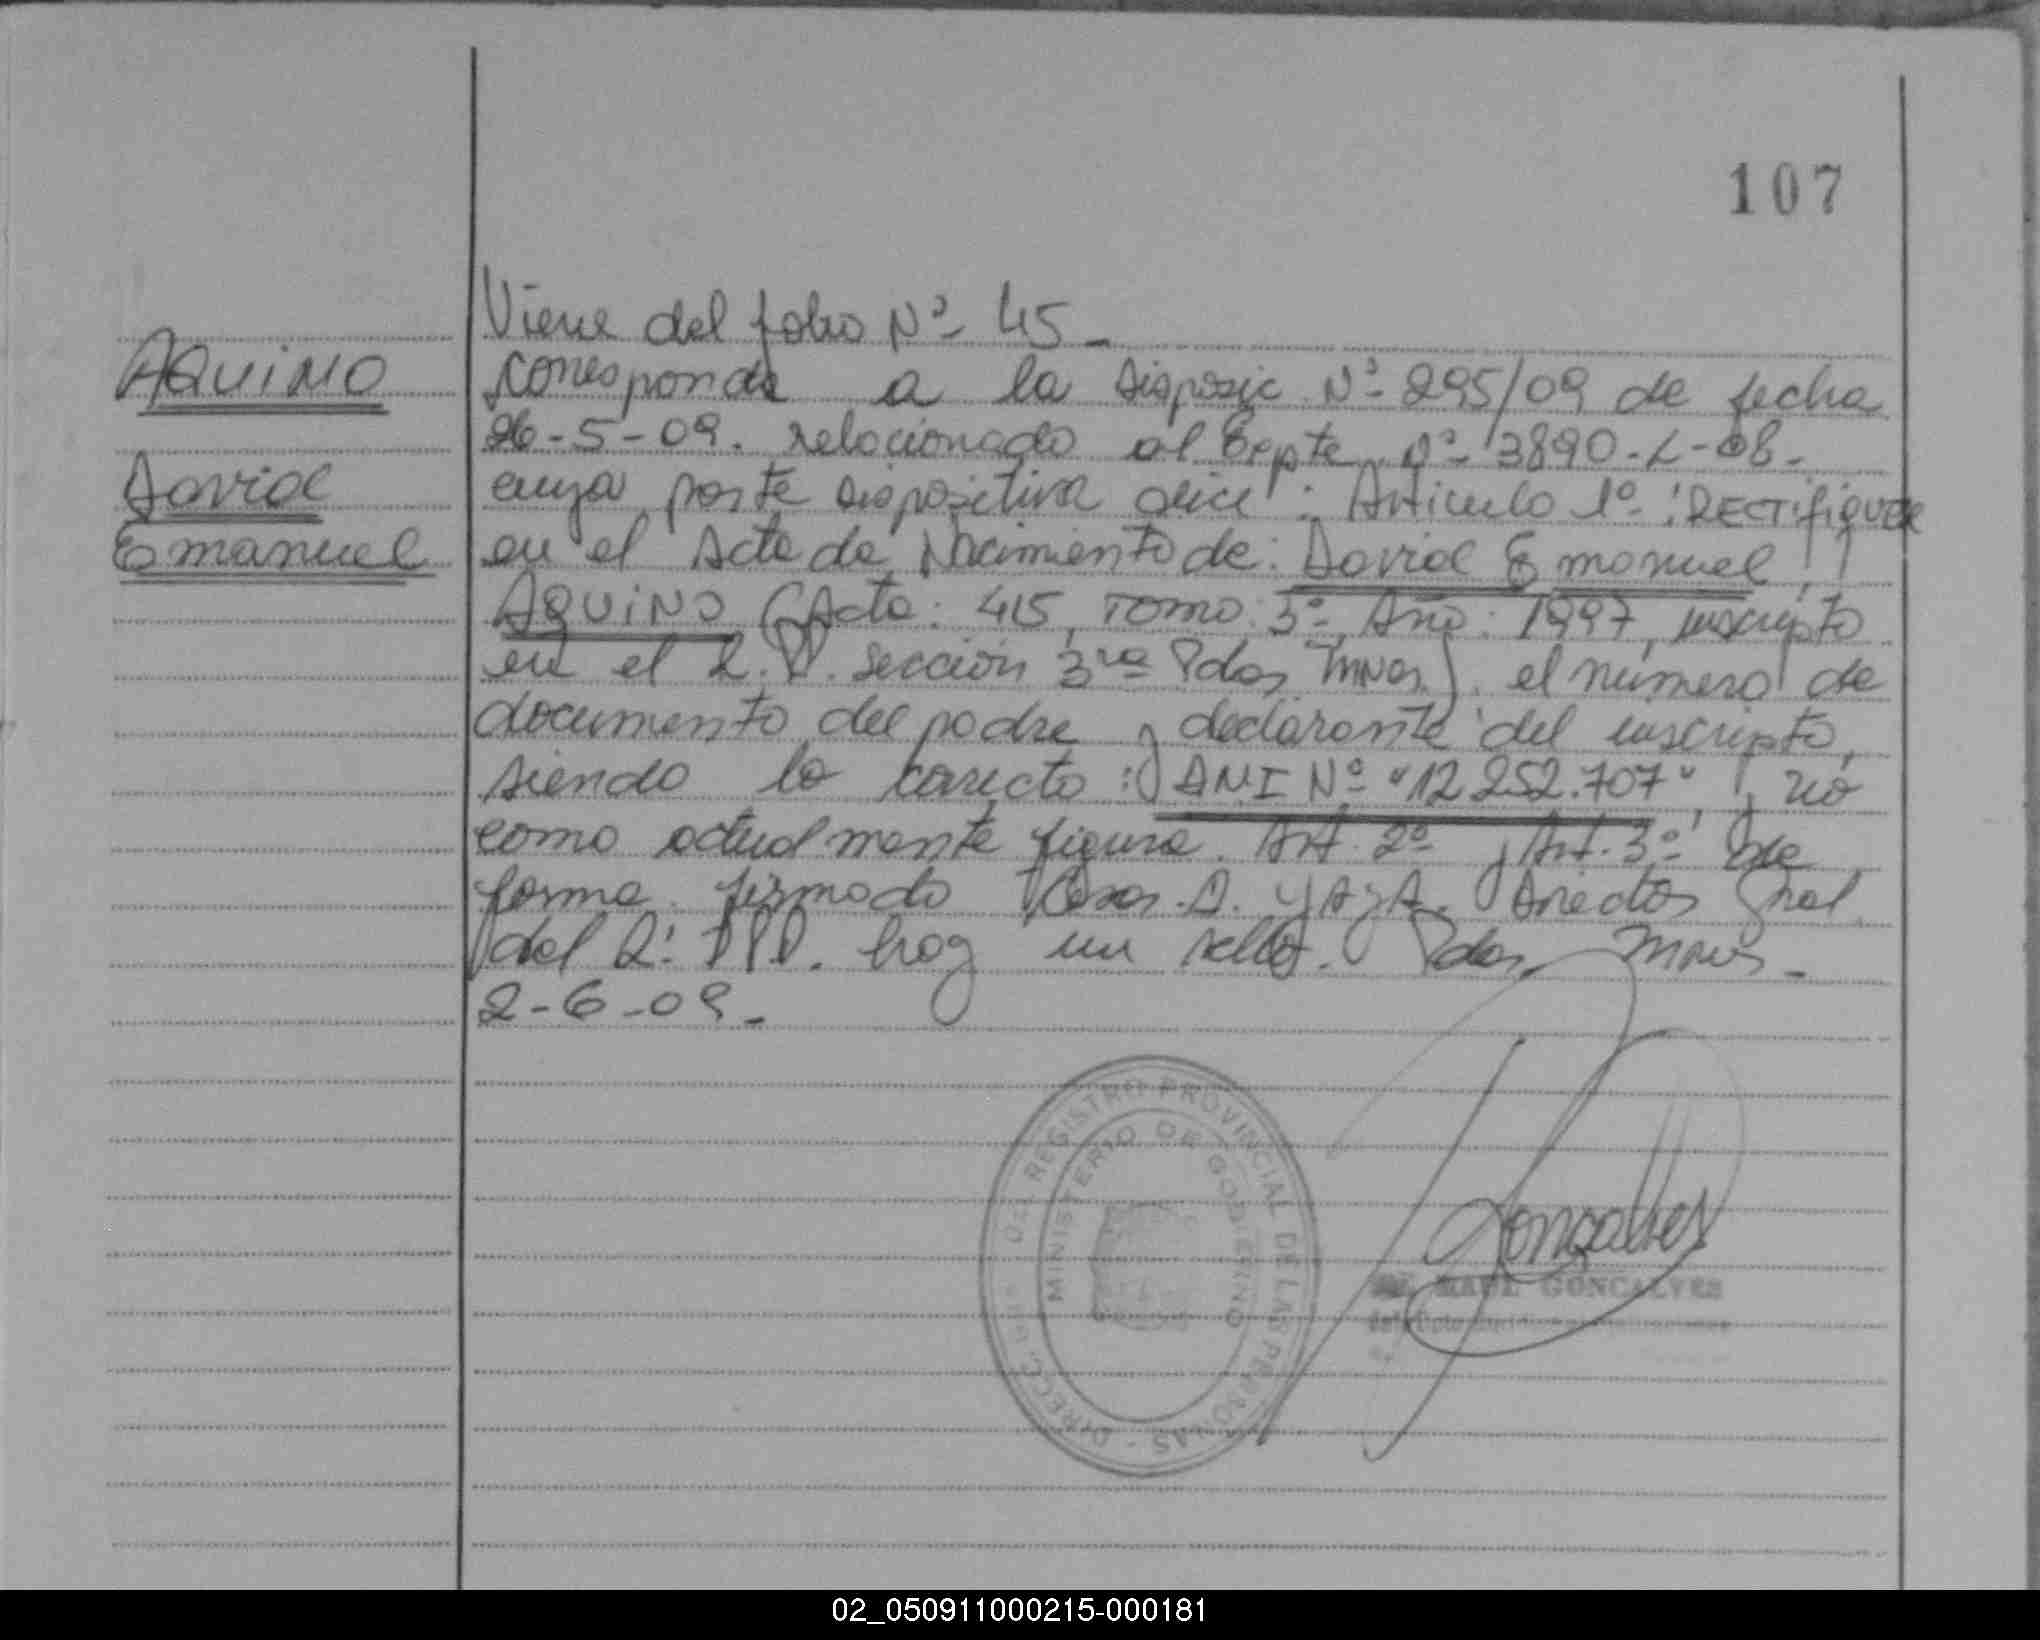 107
Viene del folio Nº 45_
AQUINO
corresponde a la Disposic Nº 295/09 de fecha
26-5-09. relacionado al Expte. Nº 3890-L-08.-
David
cuya parte dispositiva dice: Articulo 1º: RECTIFIQUESE
Emanuel
en el Acta de Nacimiento de: David Emanuel
AQUINO (Acta: 415, Tomo: 3º, Año: 1997, inscripto
en el R.P. sección 3ra Pdas Mnes). el número de
documento del padre y declarante del inscripto,
siendo lo correcto: DNI Nº "12.252.707", y no
como actualmente figura. Art. 2º y Art. 3º de
forma. firmado A. Director Gral
del R. P.P. hay un sello. Pdas. Mnes-
2-6-09.-
DIRECC. DEL REGISTRO PROVINCIAL DE LAS PERSONAS -
MINISTERIO DE GOBIERNO
Gonçalves
RAUL GONCALVES
02_050911000215-000181